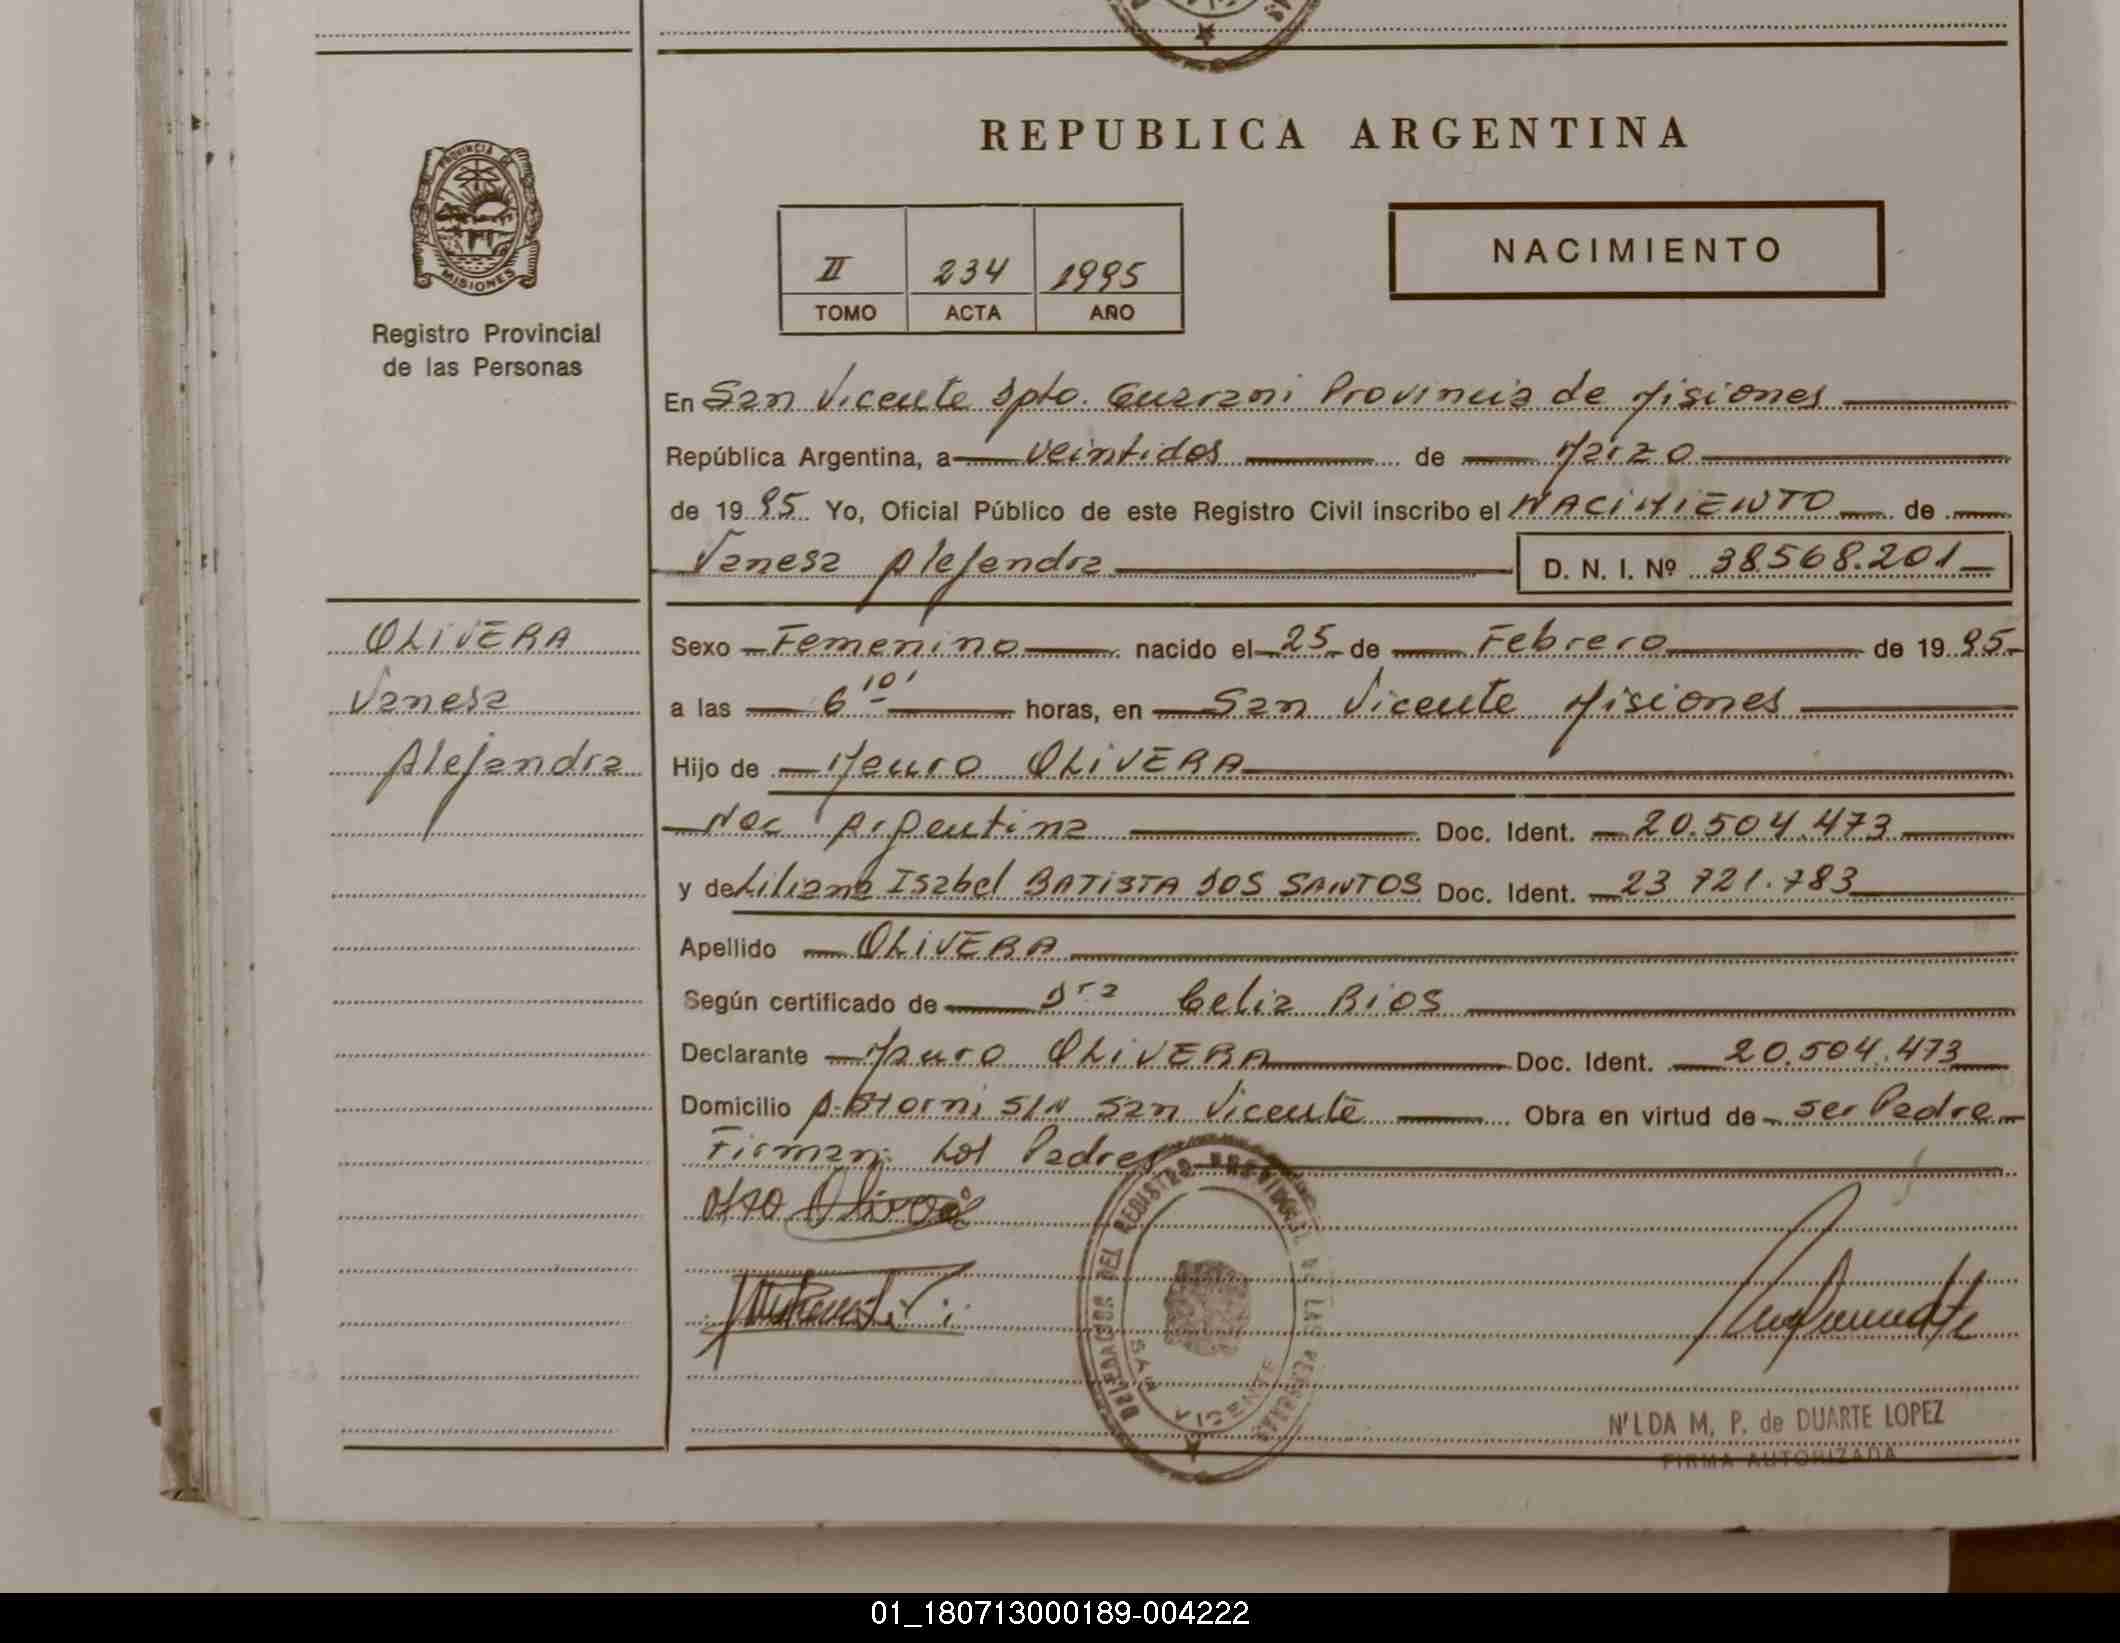 REPUBLICA ARGENTINA
PROVINCIA DE
MISIONES
Registro Provincial
de las Personas
II 234 1995
TOMO ACTA AÑO
NACIMIENTO
En San Vicente Dpto. Guarani Provincia de Misiones
República Argentina, a veintidos de Marzo
de 1995 Yo, Oficial Público de este Registro Civil inscribo el NACIMIENTO de
Vanesa Alejandra D. N. I. Nº 38.568.201
OLIVERA
Vanesa
Alejandra
Sexo Femenino nacido el 25 de Febrero de 1995
a las 6 10' horas, en San Vicente Misiones
Hijo de Mauro OLIVERA
Nac Argentina Doc. Ident. 20.504.473
y de Liliana Isabel BATISTA DOS SANTOS Doc. Ident. 23 721.783
Apellido OLIVERA
Según certificado de Dra Celia RIOS
Declarante Mauro OLIVERA Doc. Ident. 20.504.473
Domicilio A. Storni S/N San Vicente Obra en virtud de ser Padre
Firman: Los Padres
DEL REGISTRO PROVINCIAL DE LAS PERSONAS
SAN VICENTE
N'LDA M. P. de DUARTE LOPEZ
FIRMA AUTORIZADA
01_180713000189-004222